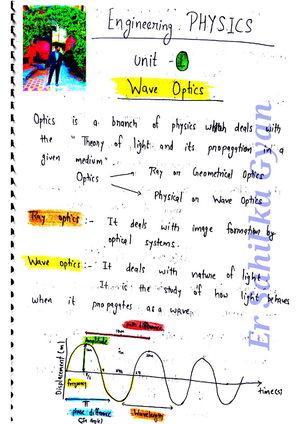 Engineering. PHYSICS
unit - 1
Wave Optics
Optics is a branch of physics which deals with
the "Theory of light and its propagation in a
given medium"
Optics → Ray or Geometrical Optics
→ Physical or Wave Optics
Ray optics :- It deals with image formation by
optical systems.
Wave optics :- It deals with nature of light
It is the study of how light behaves
when it propagates as a wave.
path difference
Amplitude
Displacement (m)
frequency
time (s)
π
phase difference
wavelength
(In angle)
Er Sahilka Gyan